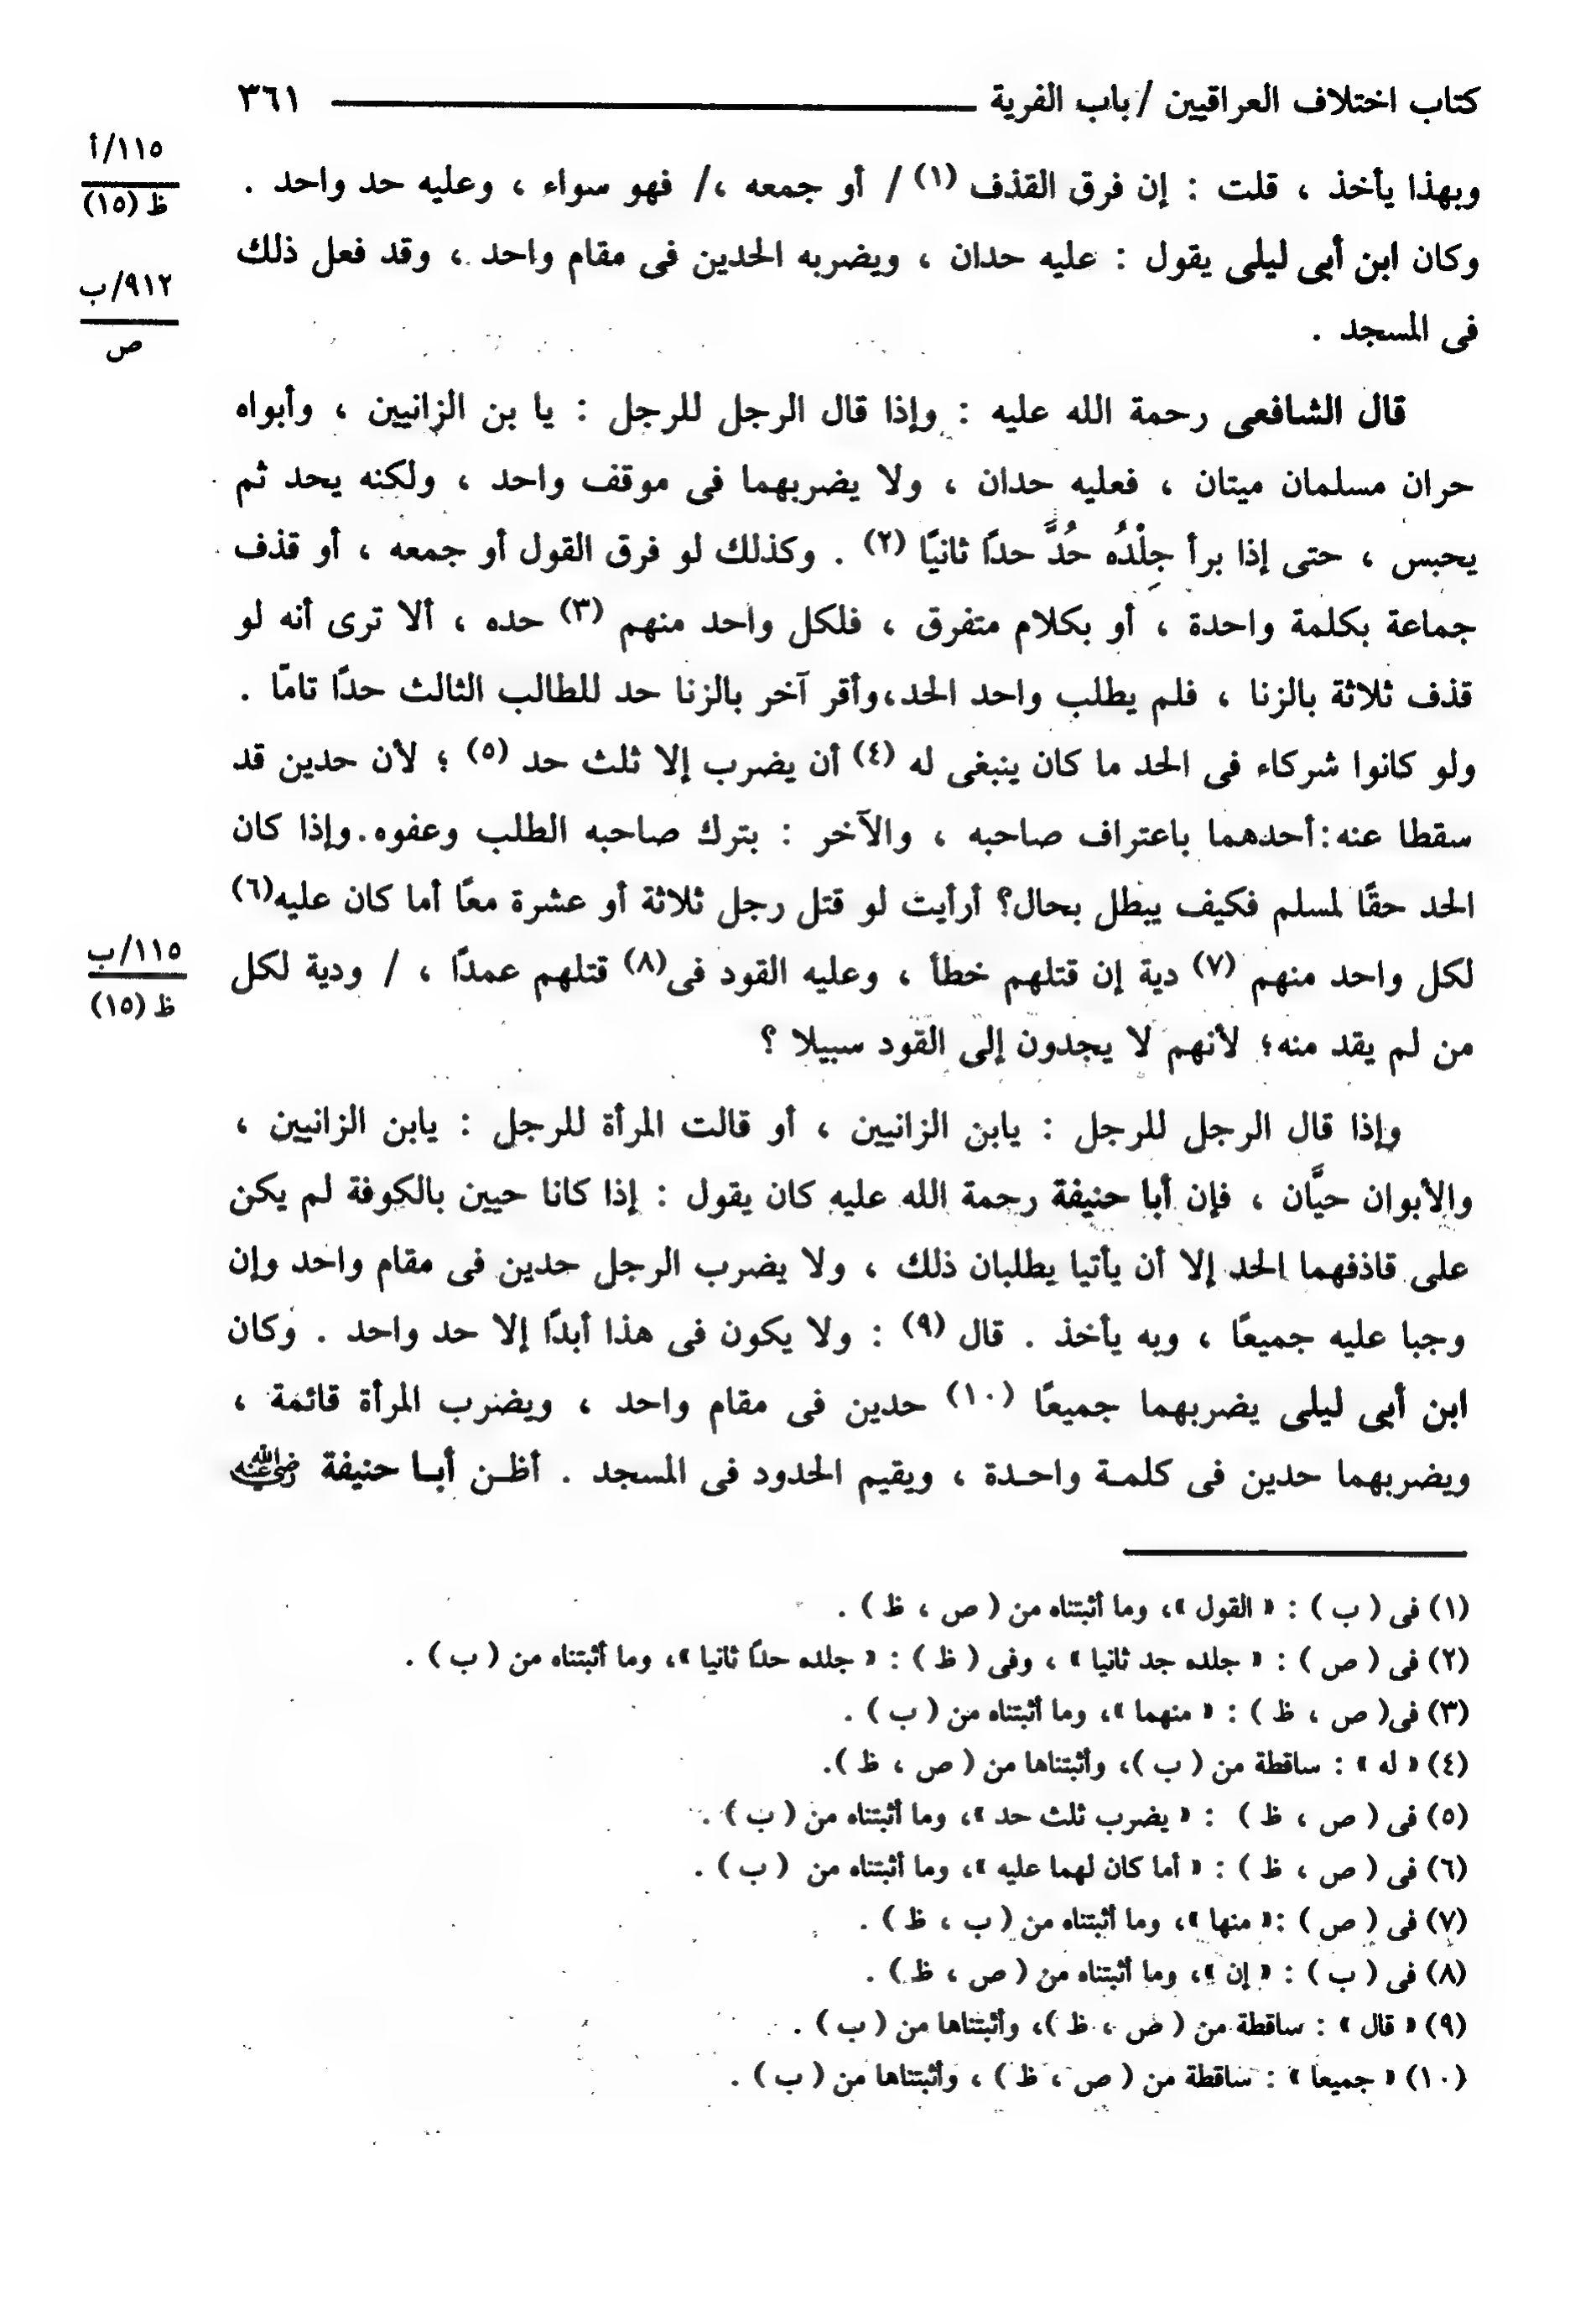 كتاب اختلاف العراقيين / باب الفرية ــــــــــ ٣٦١
١١٥/أ
ظ (١٥)
وبهذا يأخذ ، قلت : إن فرق القذف (١) / أو جمعه ،/ فهو سواء ، وعليه حد واحد .
وكان ابن أبى ليلى يقول : عليه حدان ، ويضربه الحدين فى مقام واحد ، وقد فعل ذلك
٩١٢/ب
ص
فى المسجد .
قال الشافعى رحمة الله عليه : وإذا قال الرجل للرجل : يا بن الزانيين ، وأبواه
حران مسلمان ميتان ، فعليه حدان ، ولا يضربهما فى موقف واحد ، ولكنه يحد ثم
يحبس ، حتى إذا برأ جِلْدُه حُدَّ حدًا ثانيًا (٢) . وكذلك لو فرق القول أو جمعه ، أو قذف
جماعة بكلمة واحدة ، أو بكلام متفرق ، فلكل واحد منهم (٣) حده ، ألا ترى أنه لو
قذف ثلاثة بالزنا ، فلم يطلب واحد الحد،وأقر آخر بالزنا حد للطالب الثالث حدًا تامًا .
ولو كانوا شركاء فى الحد ما كان ينبغى له (٤) أن يضرب إلا ثلث حد (٥) ؛ لأن حدين قد
سقطا عنه:أحدهما باعتراف صاحبه ، والآخر : بترك صاحبه الطلب وعفوه.وإذا كان
الحد حقًا لمسلم فكيف يبطل بحال؟ أرأيت لو قتل رجل ثلاثة أو عشرة معًا أما كان عليه(٦)
١١٥/ب
ظ (١٥)
لكل واحد منهم (٧) دية إن قتلهم خطأ ، وعليه القود فى(٨) قتلهم عمدًا ، / ودية لكل
من لم يقد منه؛ لأنهم لا يجدون إلى القود سبيلا ؟
وإذا قال الرجل للرجل : يابن الزانيين ، أو قالت المرأة للرجل : يابن الزانيين ،
والأبوان حيَّان ، فإن أبا حنيفة رحمة الله عليه كان يقول : إذا كانا حيين بالكوفة لم يكن
على قاذفهما الحد إلا أن يأتيا يطلبان ذلك ، ولا يضرب الرجل حدين فى مقام واحد وإن
وجبا عليه جميعًا ، وبه يأخذ . قال (٩) : ولا يكون فى هذا أبدًا إلا حد واحد . وكان
ابن أبى ليلى يضربهما جميعًا (١٠) حدين فى مقام واحد ، ويضرب المرأة قائمة ،
ويضربهما حدين فى كلمـة واحـدة ، ويقيم الحدود فى المسجد . أظـن أبـا حنيفة رضي الله عنه
(١) فى ( ب ) : « القول »، وما أثبتناه من ( ص ، ظ ) .
(٢) فى ( ص ) : « جلده جد ثانيا » ، وفى ( ظ ) : « جلده حدًا ثانيا »، وما أثبتناه من ( ب ) .
(٣) فى( ص ، ظ ) : « منهما »، وما أثبتناه من ( ب ) .
(٤) « له » : ساقطة من ( ب )، وأثبتناها من ( ص ، ظ ).
(٥) فى ( ص ، ظ ) : « يضرب ثلث حد »، وما أثبتناه من ( ب ) .
(٦) فى ( ص ، ظ ) : « أما كان لهما عليه »، وما أثبتناه من ( ب ) .
(٧) فى ( ص ) :« منها »، وما أثبتناه من ( ب ، ظ ) .
(٨) فى ( ب ) : « إن »، وما أثبتناه من ( ص ، ظ ) .
(٩) « قال » : ساقطة من ( ص ، ظ )، وأثبتناها من ( ب ) .
(١٠) « جميعا » : ساقطة من ( ص ، ظ ) ، وأثبتناها من ( ب ) .